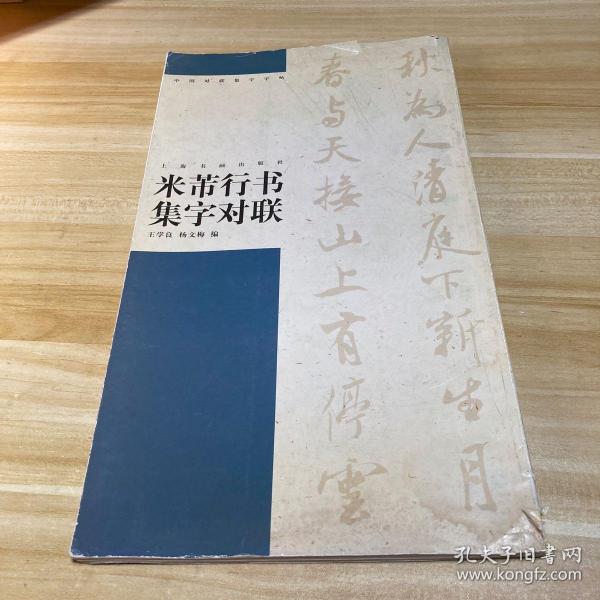 中国对联集字字帖
上海书画出版社
米芾行书
集字对联
王学良 杨文梅 编
秋为人清庭下新生月
春与天接山上有停雲
孔夫子旧書网
www.kongfz.com